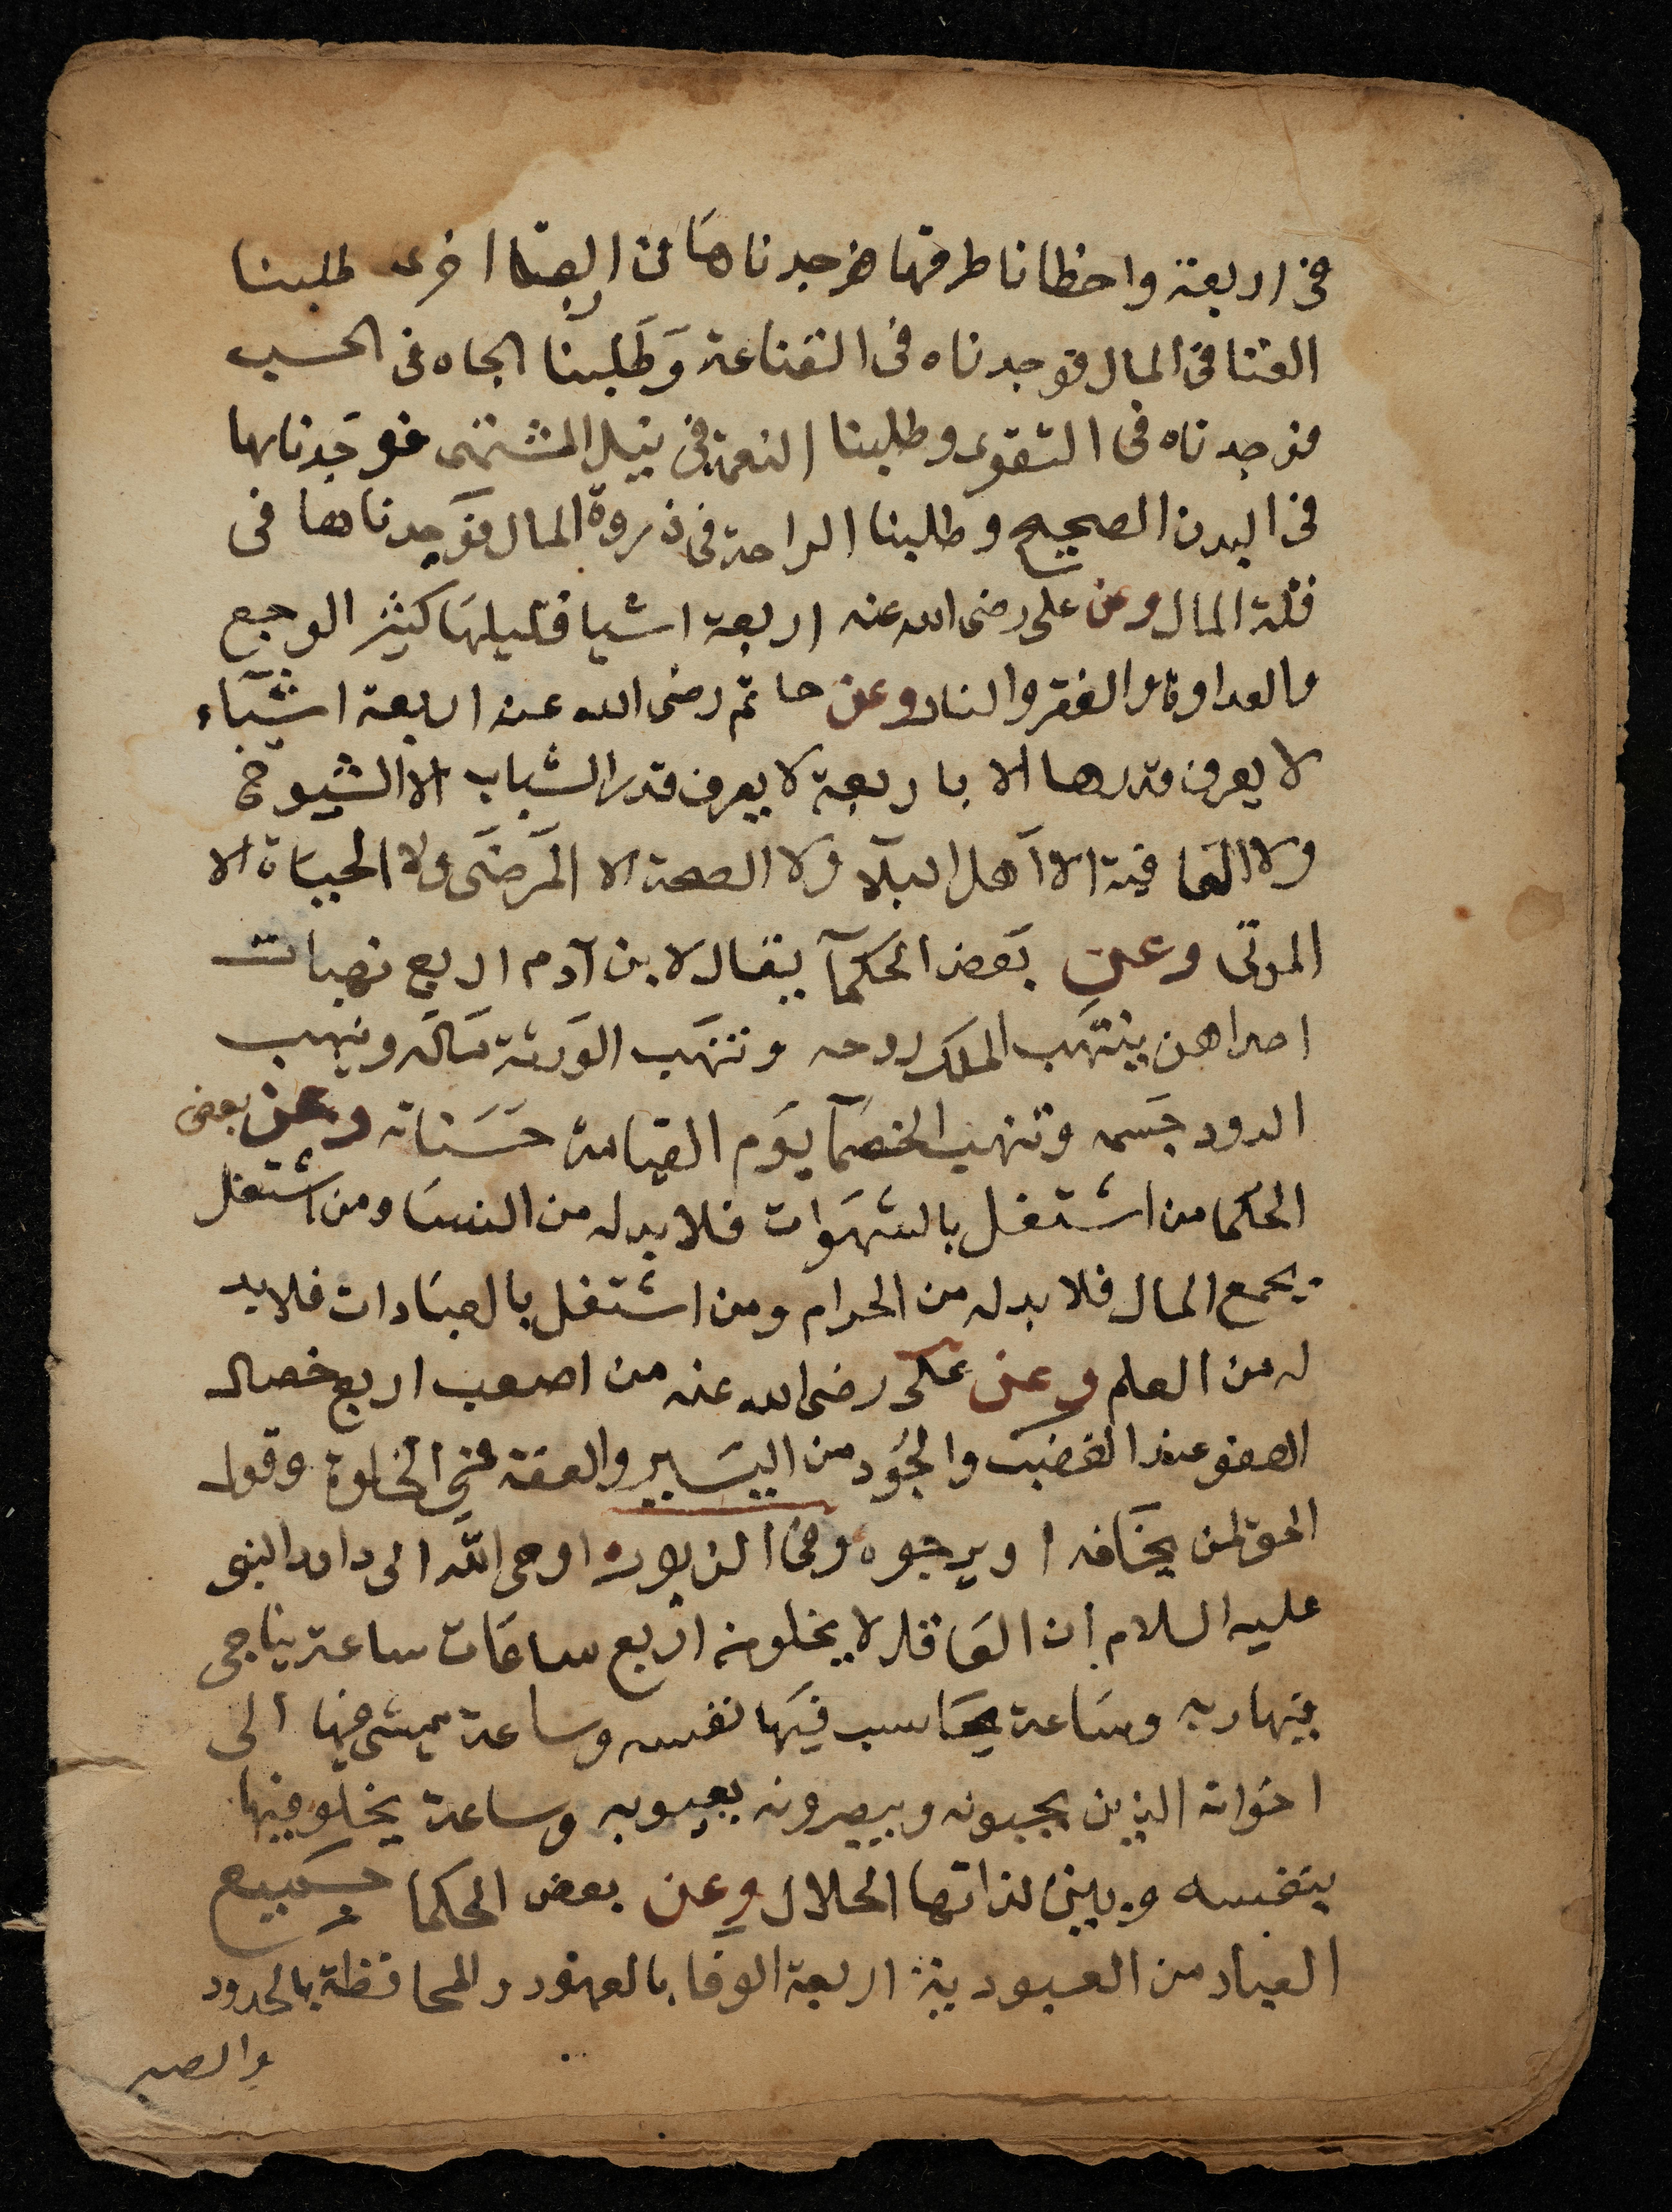 فى اربعة واخطانا طرقها فوجدناها فى اربعة اخرى طلبنا
الغنا فى المال فوجدناه فى القناعة وَطَلبنا الجاه فى الحسب
فوجدناه فى التقوى وطلبنا النعمة فى نيل المشتهى فوجَدناها
فى البدن الصحيح وطلبنا الراحة فى ذروة المال فوَجدناها فى
قلة المال وعن على رضى الله عنه اربعة اشيا قليلهَا كثير الوجع
والعداوة والفقر والنار وعن حاتم رضى الله عنه اربعة اشيآء
لا يعرف قدرها الا باربعة لا يعرف قدر الشباب الا الشيوخ
ولا العَافية الا اَهل البلآ ولا الصحة الا المَرضَى ولا الحيَاة الا
الموتى وعن بَعض الحكمآ يقال لابن آدم اربع نهبات
احداهن ينتهَب الملك روحه وتنهَب الوَرثة مَاله وينهب
الدود جَسمه وتنهب الخصمآ يَوم القيامة حسَناته وعن بعض
الحكما من اشتغل بالشهَوات فلا بد له من النسَا ومن اشتغل
بجمع المال فلا بد له من الحرام ومن اشتغل بالعبَادات فلا بد
له من العلم وعن على رضى الله عنه من اصعب اربع خصال
العفو عند الغضبَ والجُود من اليسَير والعفة فى الخلوة وقول
الحق لمن يخَافه او يرجوه وفى الزبور اوحى اللَّه الى داود النبى
عليه السلام ان العَاقل لا يخلو من اربع ساعَات ساعة يناجى
فيها ربه وسَاعة يحَاسب فيَها نفسه وساعة يمشى فيها الى
اخوَانه الذين يحبونه ويبصرونه بعيوبه وساعة يخلو فيها
بنفسه وبين لذاتها الحلال وعن بعض الحكما جميع
العباد من العبودية اربعة الوفا بالعهود والمحافظة بالحدود
والصبر